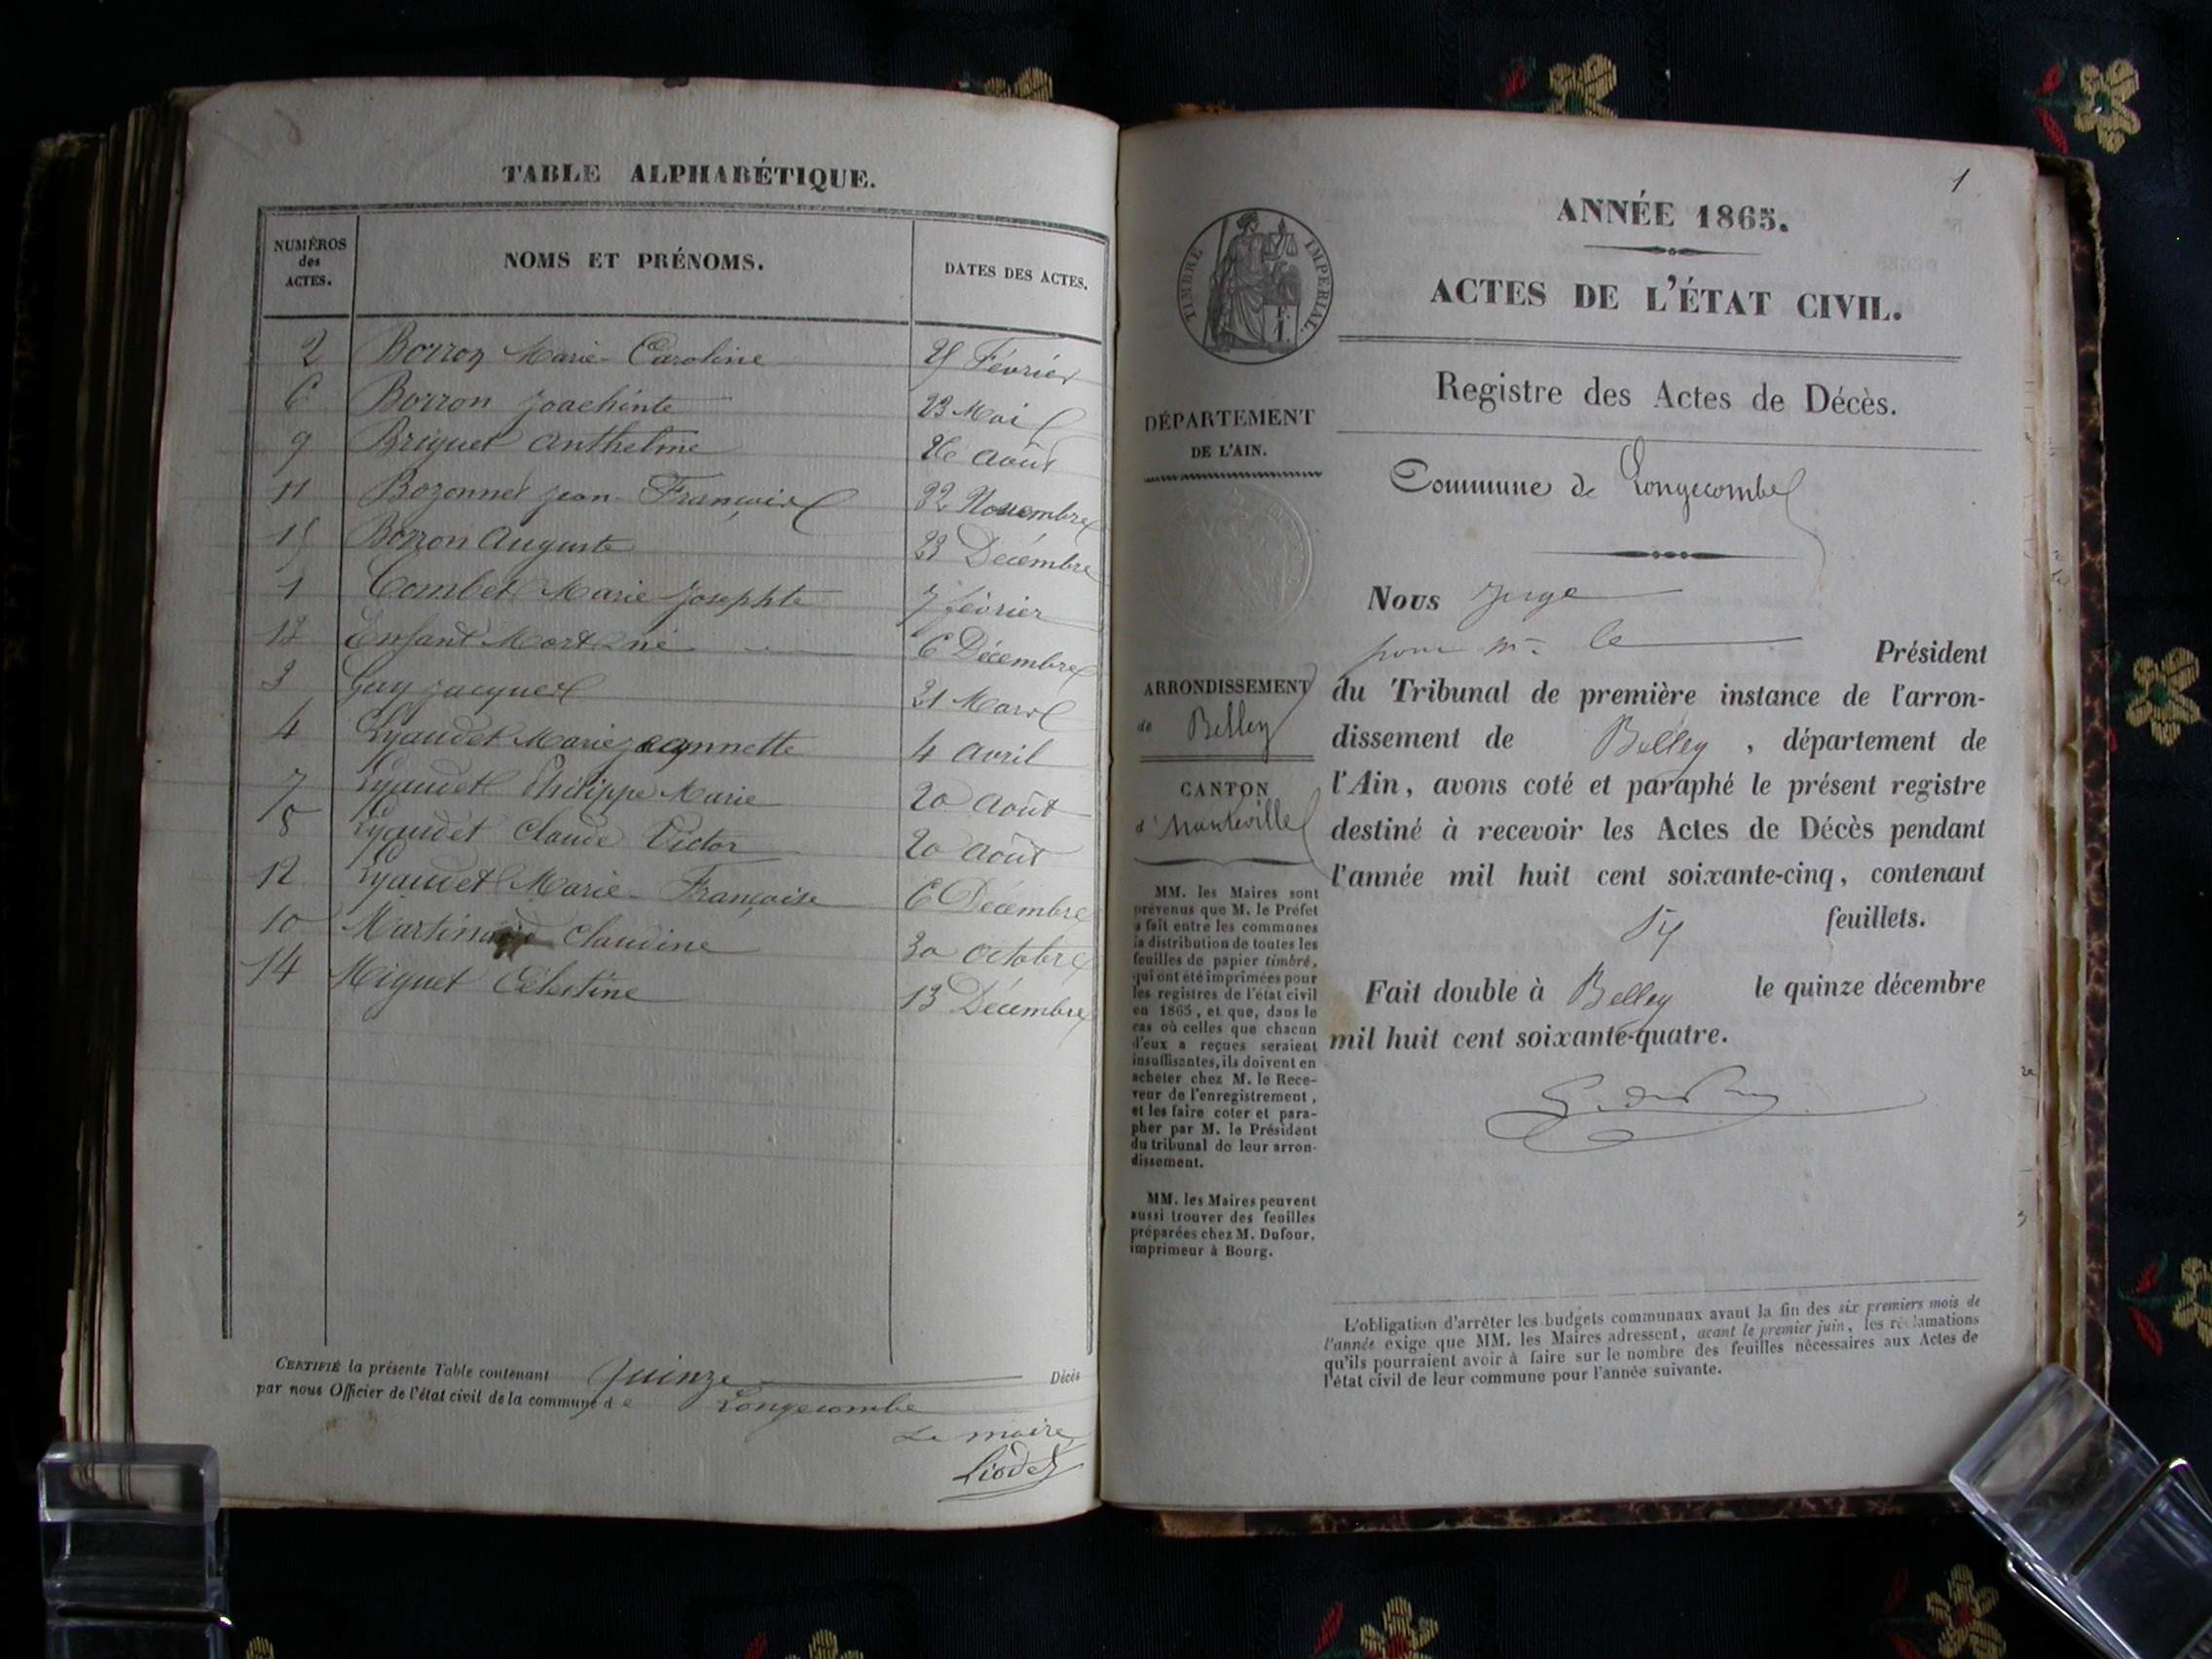 TABLE ALPHABÉTIQUE.
NUMÉROS
des
ACTES.
NOMS ET PRÉNOMS.
DATES DES ACTES.
2 Borron Marie Caroline 25 Février
6 Borron Joachinte 23 Mai
9 Briguet Anthelme 26 Août
11 Bozonnet Jean-François 22 Novembre
15 Borron Auguste 23 Décembre
1 Combet Marie Josephte 7 février
13 Enfant Mort né 6 Décembre
3 Gay Jacques 21 Mars
4 Lyaudet Marie Jeannette 4 Avril
7 Lyaudet Philippe Marie 20 Août
8 Lyaudet Claude Victor 20 Août
12 Lyaudet Marie-Françoise 6 Décembre
10 Martinand Claudine 30 Octobre
14 Miguet Célestine 13 Décembre
CERTIFIÉ la présente Table contenant quinze Décès
par nous Officier de l'état civil de la commune de Longecombe
Le maire
Liodet
1
ANNÉE 1865.
ACTES DE L'ÉTAT CIVIL.
TIMBRE IMPERIAL.
Registre des Actes de Décès.
DÉPARTEMENT
DE L'AIN.
Commune de Longecombe
Nous Juge
pour Mr. le Président
ARRONDISSEMENT
de Belley
CANTON
d'hauteville
du Tribunal de première instance de l'arron-
dissement de Belley, département de
l'Ain, avons coté et paraphé le présent registre
destiné à recevoir les Actes de Décès pendant
l'année mil huit cent soixante-cinq, contenant
feuillets.
Fait double à Belley le quinze décembre
mil huit cent soixante-quatre.
MM. les Maires sont
prévenus que M. le Préfet
a fait entre les communes
la distribution de toutes les
feuilles de papier timbré,
qui ont été imprimées pour
les registres de l'état civil
en 1865, et que, dans le
cas où celles que chacun
d'eux a reçues seraient
insuffisantes, ils doivent en
acheter chez M. le Rece-
veur de l'enregistrement,
et les faire coter et para-
pher par M. le Président
du tribunal de leur arron-
dissement.
MM. les Maires peuvent
aussi trouver des feuilles
préparées chez M. Dufour,
imprimeur à Bourg.
L'obligation d'arrêter les budgets communaux avant la fin des six premiers mois de
l'année exige que MM. les Maires adressent, avant le premier juin, les réclamations
qu'ils pourraient avoir à faire sur le nombre des feuilles nécessaires aux Actes de
l'état civil de leur commune pour l'année suivante.